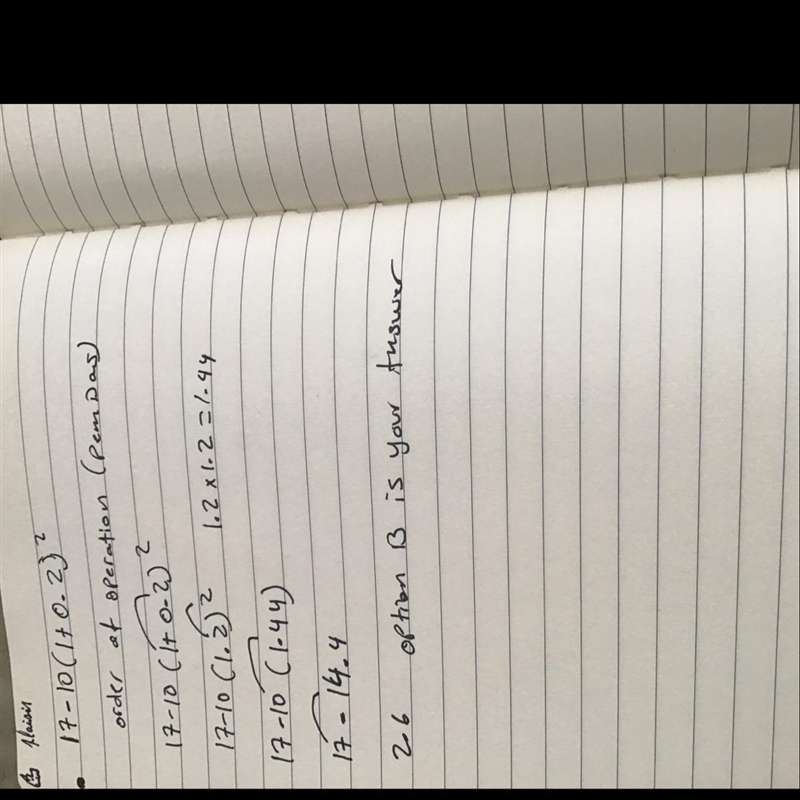 17-10(1+0.2)²
order at operation (PemDas)
17-10(1+0.2)²
17-10(1.2)² 1.2×1.2=1.44
17-10(1.44)
17-14.4
2.6 option B is your Answer